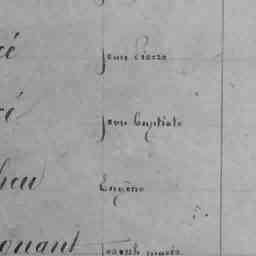 cé Jean Pierre
cé Jean Baptiste
heu Eugène
gnant Joseph marie